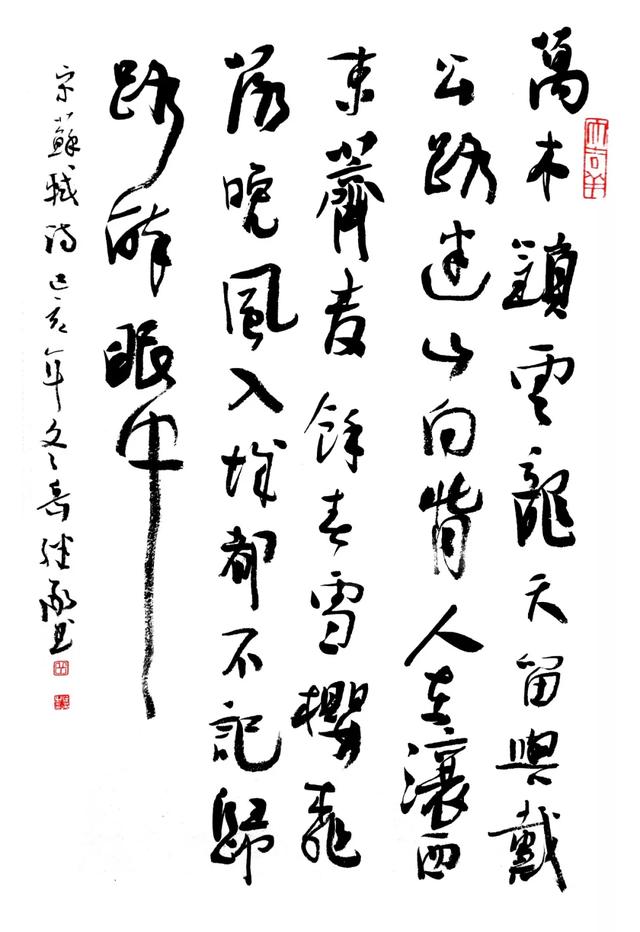 萬木鎖雲龍天留與戴
公路迷山向背人在瀼西
東薺麥餘春雪櫻桃
落晚風入城都不記歸
路醉眠中
宋蘇軾詩己亥年冬